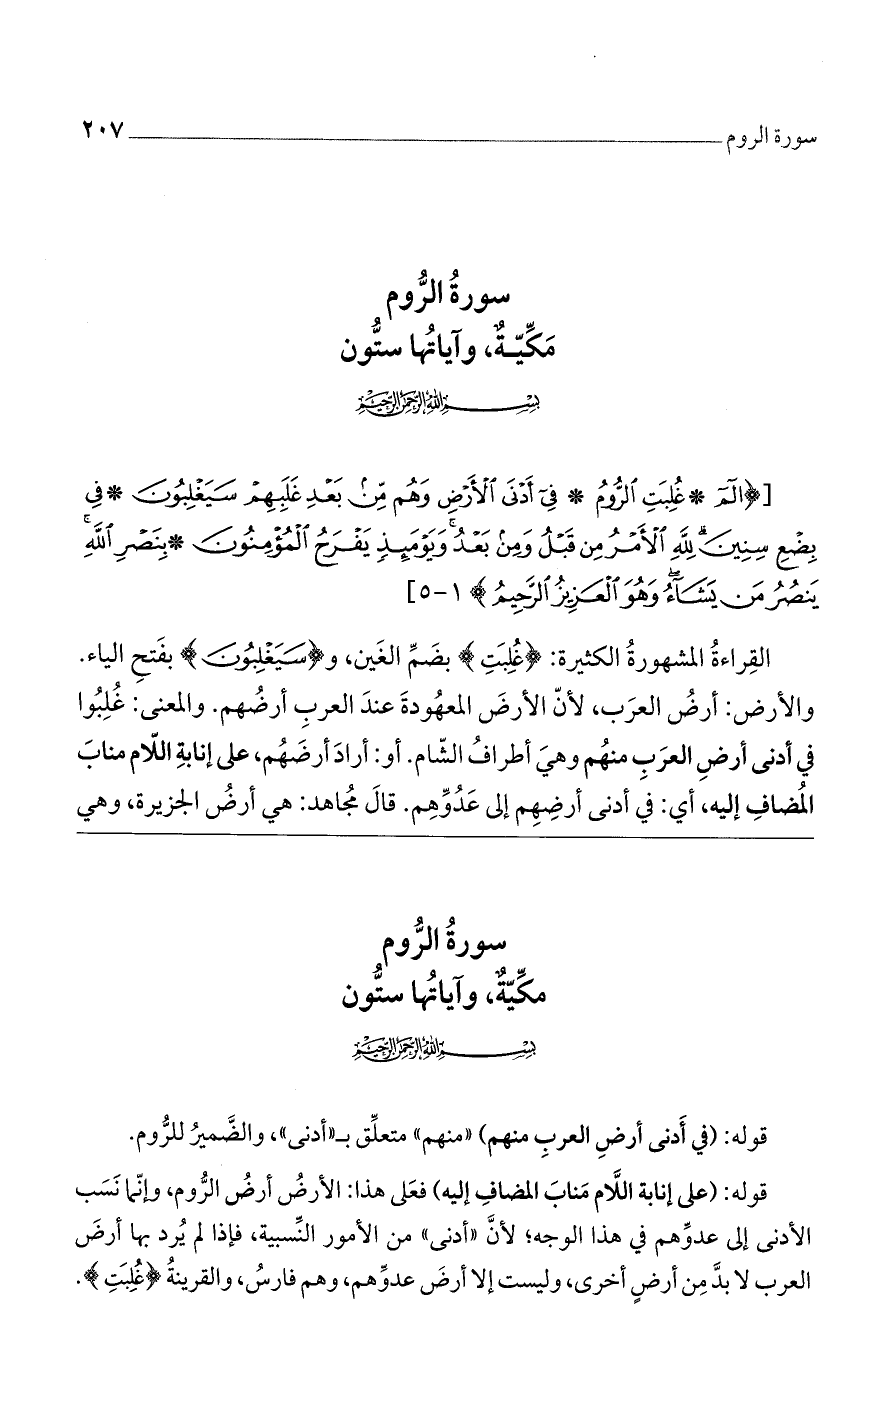 سورة الروم ٢٠٧
سورةُ الرُّوم
مَكِّيّةٌ، وآياتُها ستُّون
بِسْمِ اللَّهِ الرَّحْمَنِ الرَّحِيمِ
[﴿الٓمٓ * غُلِبَتِ ٱلرُّومُ * فِىٓ أَدْنَى ٱلْأَرْضِ وَهُم مِّنۢ بَعْدِ غَلَبِهِمْ سَيَغْلِبُونَ * فِى
بِضْعِ سِنِينَ ۗ لِلَّهِ ٱلْأَمْرُ مِن قَبْلُ وَمِنۢ بَعْدُ ۚ وَيَوْمَئِذٍ يَفْرَحُ ٱلْمُؤْمِنُونَ * بِنَصْرِ ٱللَّهِ ۚ
يَنصُرُ مَن يَشَآءُ ۖ وَهُوَ ٱلْعَزِيزُ ٱلرَّحِيمُ﴾ ١-٥]
القِراءةُ المشهورةُ الكثيرة: ﴿غُلِبَتِ﴾ بضَمِّ الغَين، و﴿سَيَغْلِبُونَ﴾ بفَتحِ الياء.
والأرض: أرضُ العرَب، لأنّ الأرضَ المعهُودةَ عندَ العربِ أرضُهم. والمعنى: غُلِبُوا
في أدنى أرضِ العرَبِ منهُم وهيَ أطرافُ الشّام. أو: أرادَ أرضَهُم، على إنابةِ اللّام منابَ
المُضافِ إليه، أي: في أدنى أرضِهِم إلى عَدُوِّهِم. قالَ مُجاهد: هي أرضُ الجزيرة، وهي
سورةُ الرُّوم
مكِّيّةٌ، وآياتُها ستُّون
بِسْمِ اللَّهِ الرَّحْمَنِ الرَّحِيمِ
قوله: (في أَدنى أرضِ العربِ منهم) «منهم» متعلِّق بـ«أدنى»، والضَّميرُ للرُّوم.
قوله: (على إنابة اللَّام مَنابَ المضافِ إليه) فعَلى هذا: الأرضُ أرضُ الرُّوم، وإنّما نَسَب
الأدنى إلى عدوِّهم في هذا الوجه؛ لأنَّ «أدنى» من الأمور النِّسبية، فإذا لم يُرد بها أرضَ
العرب لا بدَّ مِن أرضٍ أخرى، وليست إلا أرضَ عدوِّهم، وهم فارسُ، والقرينةُ ﴿غُلِبَتِ﴾.